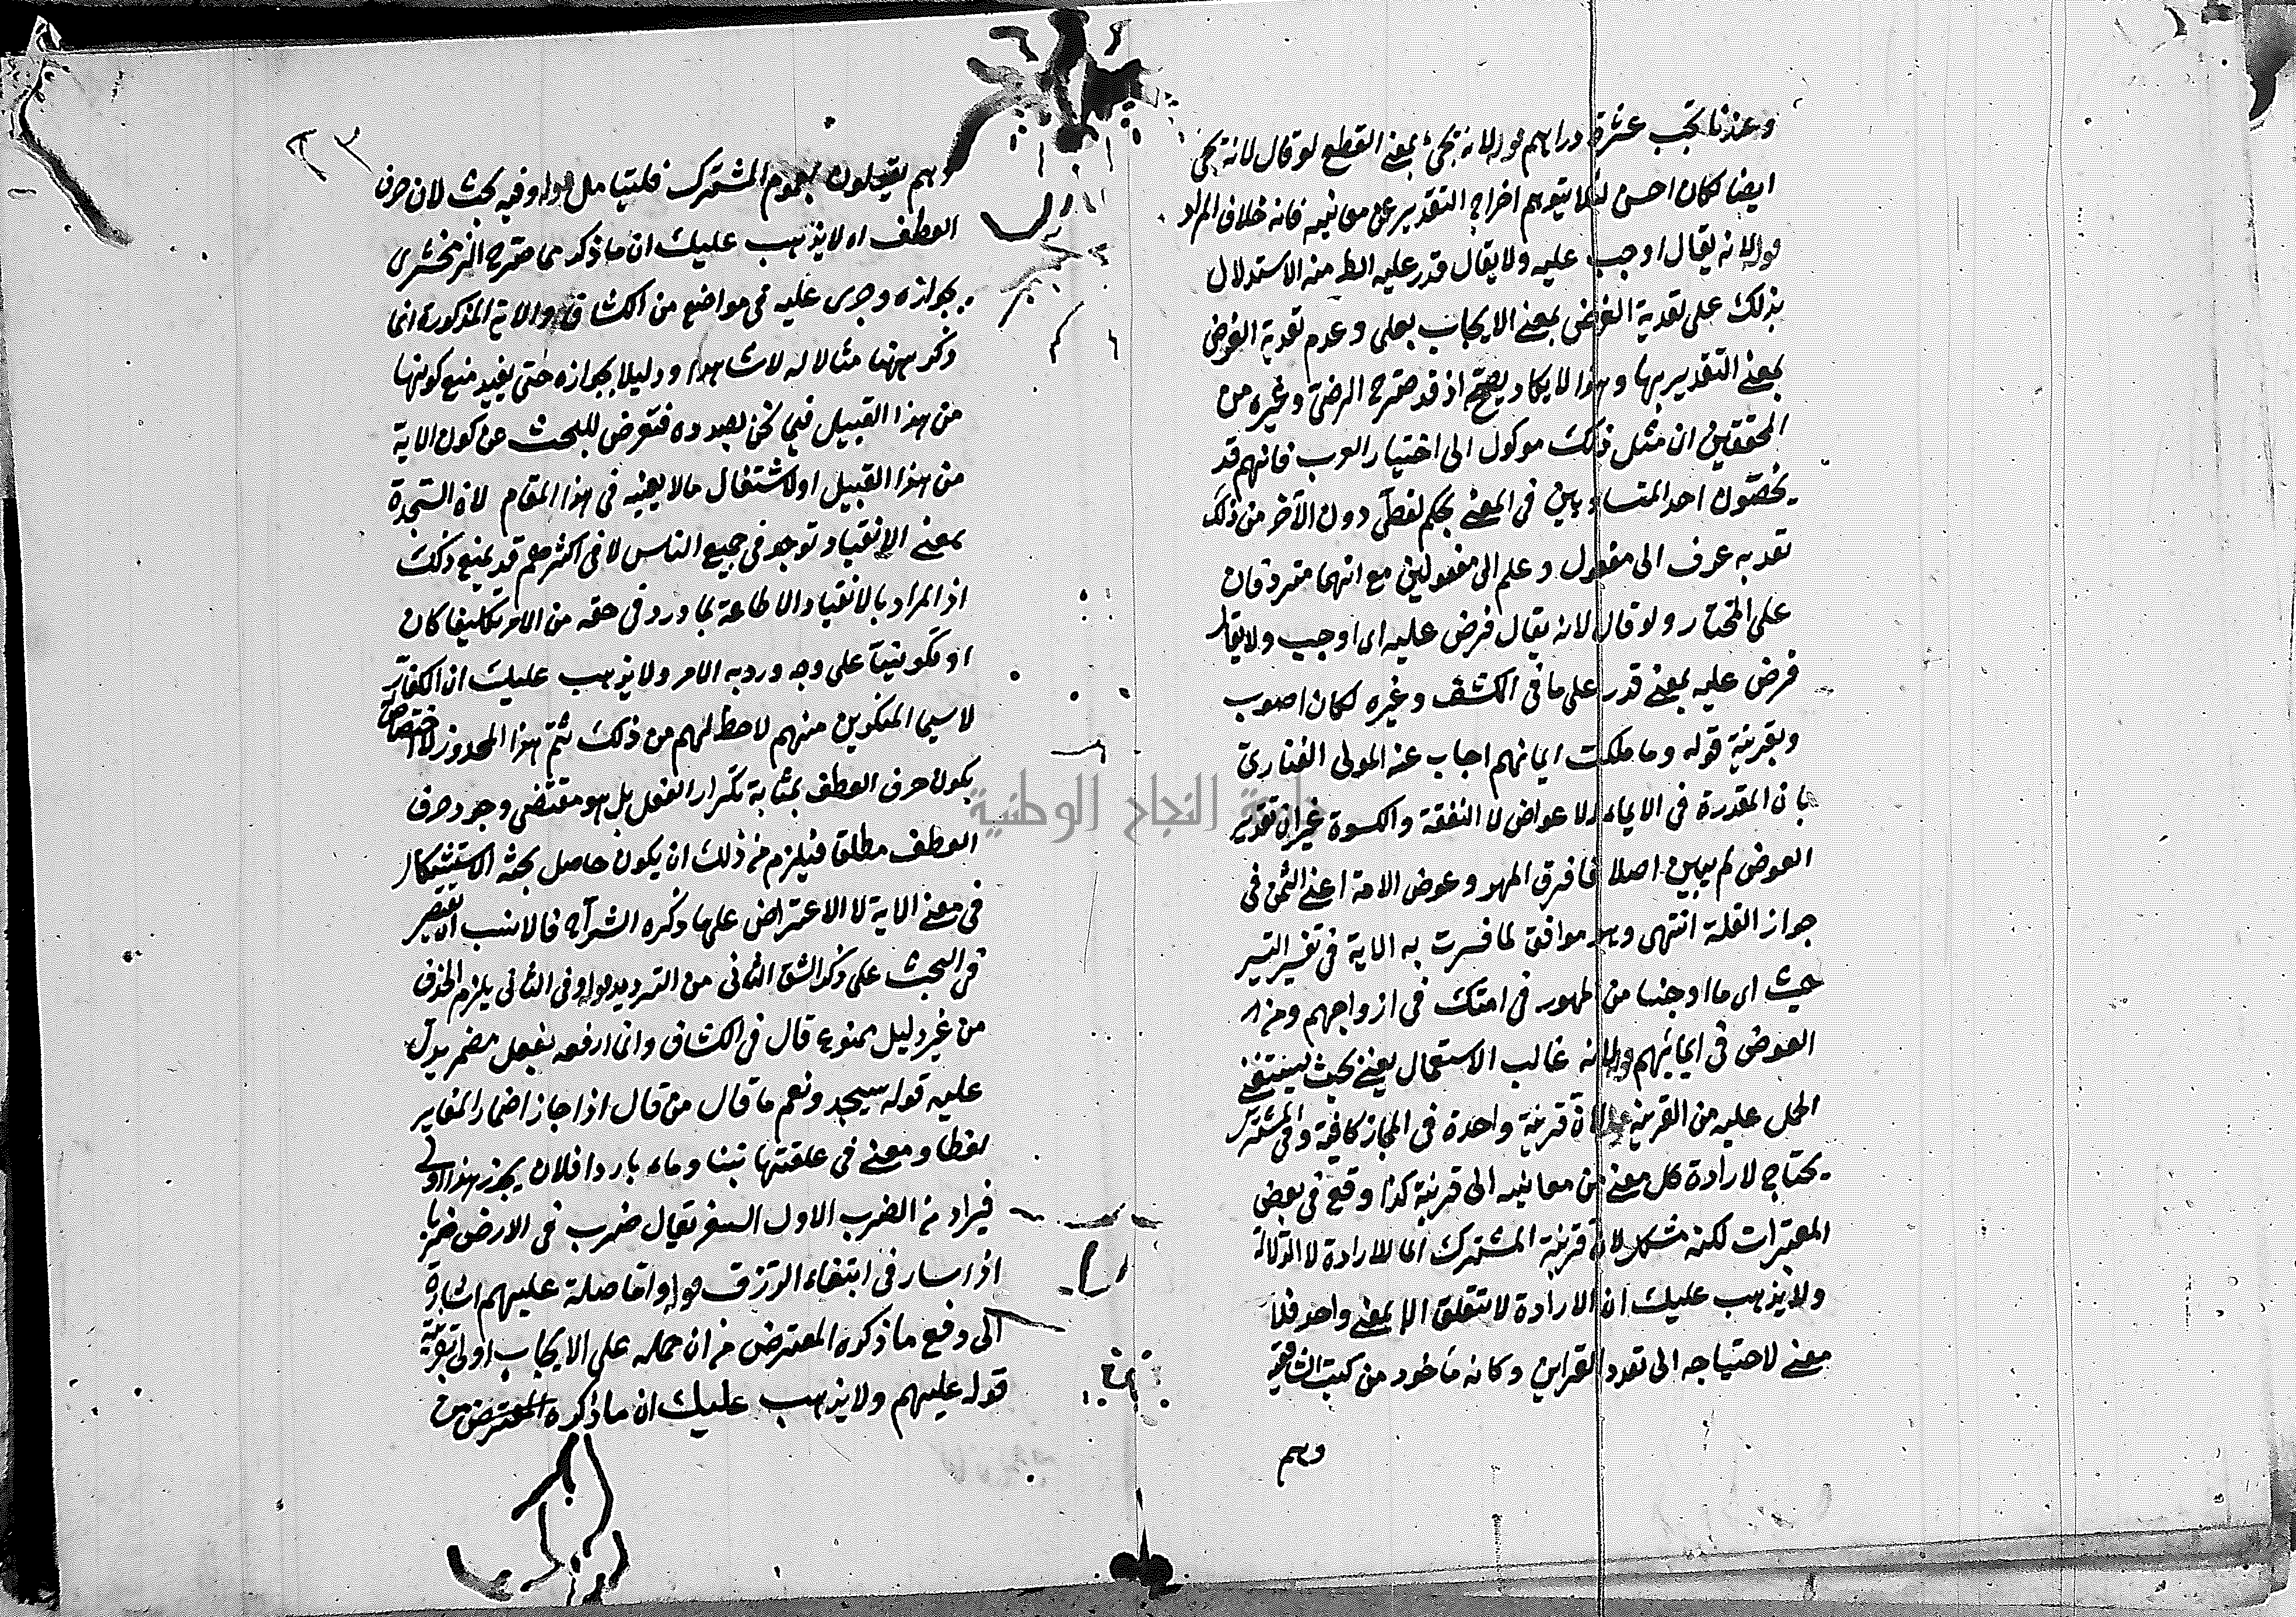 وعندنا تجب عشرة دراهم قوله لانه تجئ بمعنى القطع لو قال لانه يجئ
ايضا لكان احسن لئلا يتوهم اخراج التقدير عن معانيه فانه خلاف المراد
قوله لانه يقال اوجب عليه ولا يقال قدر عليه الظ منه الاستدلال
بذلك على تعدية الفرض بمعنى الايجاب بعلى وعدم تعدية الفرض
بمعنى التقدير بها وهذا لا يكاد يصح اذ قد صرح الرضى وغيره من
المحققين ان مثل ذلك موكول الى اختيار العرب فانهم قد
يخصون احد المتساويين فى المعنى بحكم لفظى دون الآخر من ذلك
تعديه عرف الى مفعول وعلم الى مفعولين مع انهما مترادفان
على المختار ولو قال لانه يقال فرض عليه اى اوجب ولا يقال
فرض عليه بمعنى قدر على ما فى الكشف وغيره لكان اصوب
وبقرينة قوله وما ملكت ايمانهم اجاب عنه المولى الفنارى
بان المقدرة فى الايماء الاعواض لا النفقة والكسوة غير ان تقدير
العوض لم يبين اصلا فما فرق المهر وعوض الامة اعنى الثمن فى
جواز القلة انتهى وهو موافق لما فسرت به الاية فى تفسير التيسير
حيث اى ما اوجبنا من المهور فى امتك فى ازواجهم ومن
العوض فى ايمانهم قوله لانه غالب الاستعمال يعنى بحيث يستغنى
الحمل عليه من القرينة قوله لان قرينة واحدة فى المجاز كافية وفى المشترك
يحتاج لارادة كل معنى من معانيه الى قرينة كذا وقع فى بعض
المعتبرات لكنه مشكل لان قرينة المشترك انما للارادة لا الدلالة
ولا يذهب عليك ان الارادة لا تتعلق الا بمعنى واحد فلا
معنى لاحتياجه الى تعدد القراين وكانه مأخوذ من كتب الشافعية
وهم
٢٣
وهم يقولون بعموم المشترك فليتأمل قوله وفيه بحث لان حرف
العطف اه لا يذهب عليك ان ما ذكر مما صرح الزمخشرى
بجوازه وجرى عليه فى مواضع من الكشاف والاية المذكورة انما
ذكر ههنا مثالا له لا شاهدا ودليلا بجوازه حتى يفيد منع كونها
من هذا القبيل فيما نحن بصدده فتعرض للبحث عن كون الاية
من هذا القبيل او لاشتغال ما لا يعنيه فى هذا المقام لان السجدة
بمعنى الانقياد توجد فى جميع الناس لا فى اكثرهم قد يمنع ذلك
اذ المراد بالانقياد الاطاعة لما ورد فى حقه من الامر تكليفا كان
او تكوينيا على وجه ورد به الامر ولا يذهب عليك ان الكفار
لا سيما المنكوين منهم لا حظ لهم من ذلك ثم هذا المحذور لا اختصاص
بكون حرف العطف بمثابة تكرار الفعل بل هو مقتضى وجود حرف
العطف مطلقا فيلزم من ذلك ان يكون حاصل بحثه الاستشكال
فى معنى الاية لا الاعتراض على ما ذكره الشراح فالانسب ان يقتصر
فى البحث على ذكر الشق الثانى من الترديد قوله وفى الثانى يلزم الحذف
من غير دليل ممنوع قال فى الكشاف وانما ارفعه بفعل مضمر يدل
عليه قوله يسجد ونعم ما قال من قال اذا جاز اضمار المغاير
لفظا ومعنى فى علفتها تبنا وماء باردا فلان يجوز هذا اولى
فيراد من الضرب الاول السفر يقال ضرب فى الارض ضربا
اذا سار فى ابتغاء الرزق قوله واما صلة عليهم اشارة
الى دفع ما ذكره المعترض من ان حمله على الايجاب اولى بقرينة
قوله عليهم ولا يذهب عليك ان ما ذكره المعترض من
جامعة النجاح الوطنية